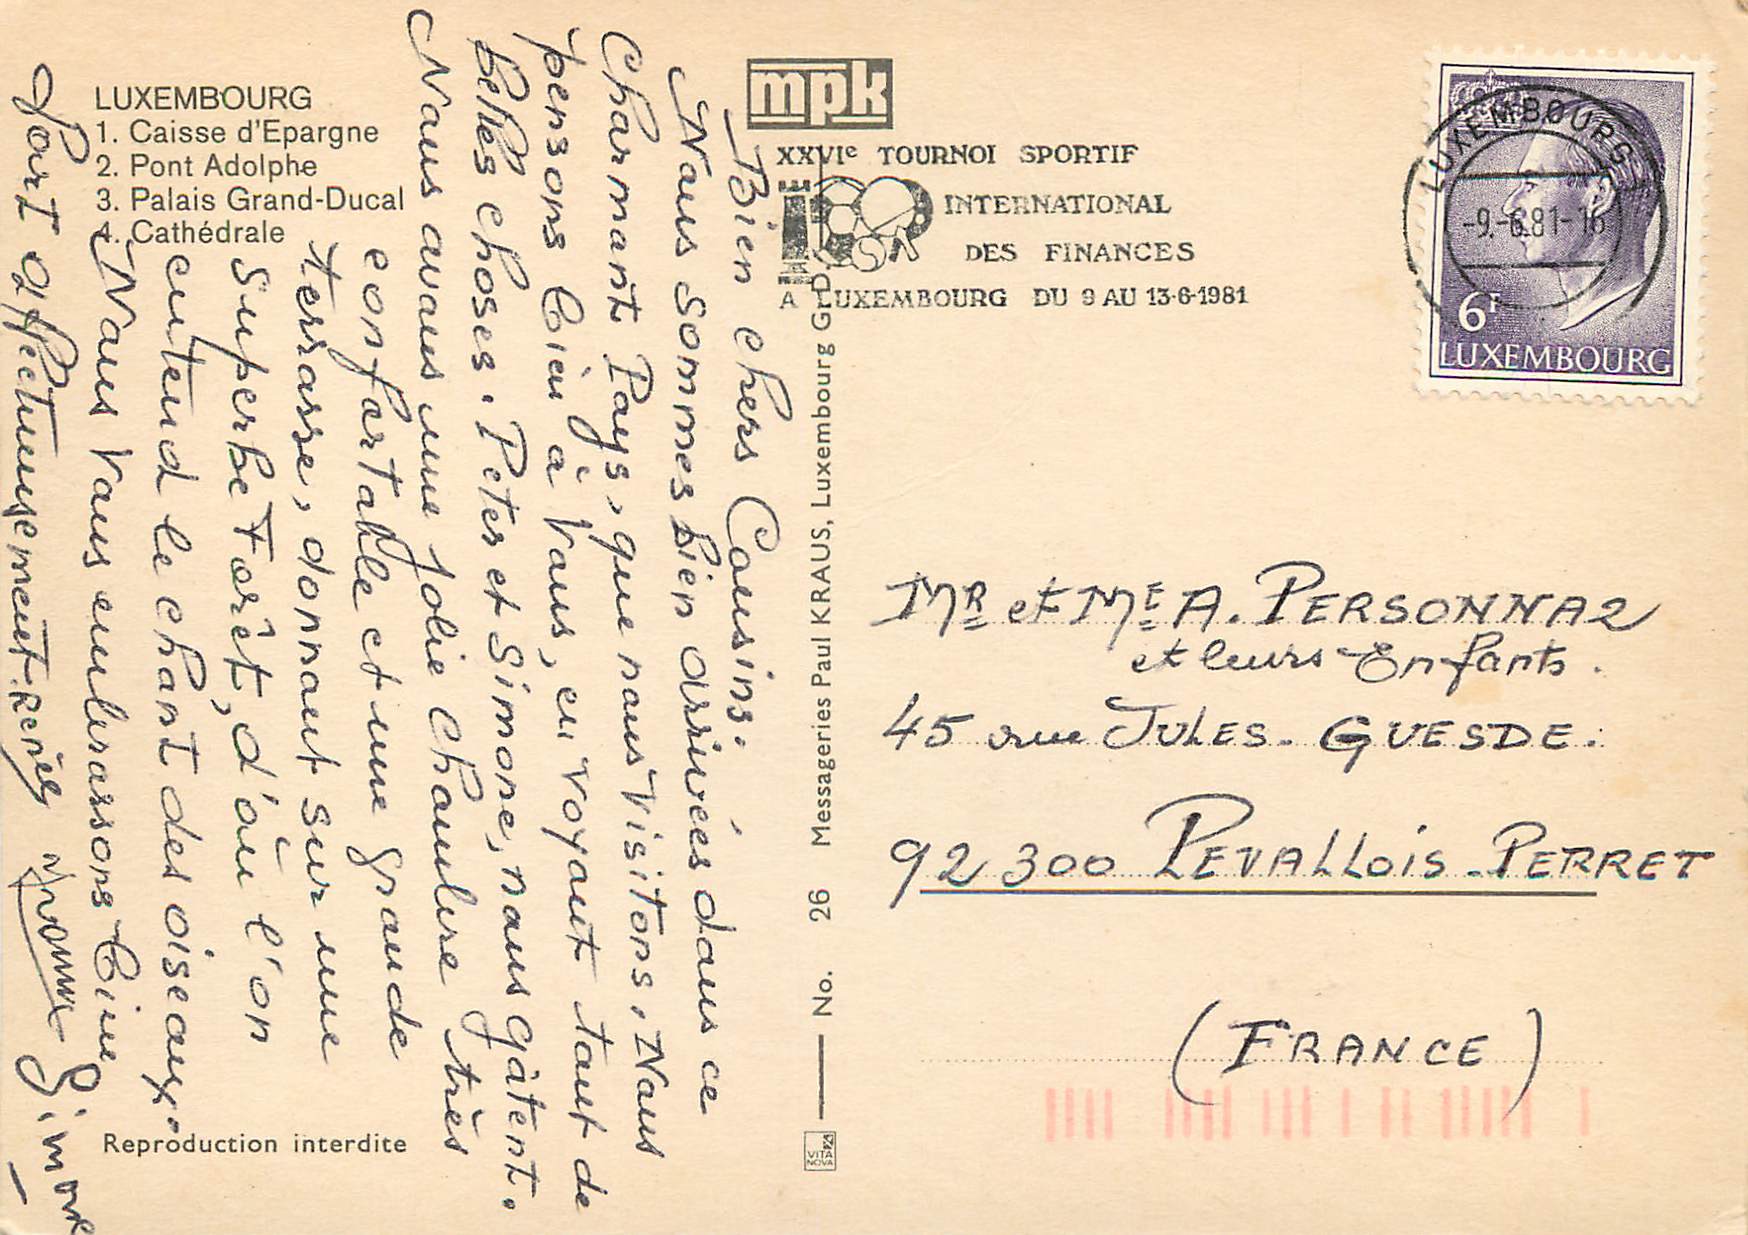 LUXEMBOURG
1. Caisse d'Epargne
2. Pont Adolphe
3. Palais Grand-Ducal
4. Cathédrale
mpk
XXVIe TOURNOI SPORTIF
INTERNATIONAL
DES FINANCES
A LUXEMBOURG DU 9 AU 13-6-1981
LUXEMBOURG
-9.-6.81-16
6F
LUXEMBOURG
Bien chers Cousins.
Nous sommes bien arrivées dans ce
Charmant Pays, que nous Visitons. Nous
pensons bien à Vous, en voyant tant de
belles choses. Peter et Simone, nous gâtent.
Nous avons une jolie chambre très
confortable et une grande
terrasse, donnant sur une
superbe Forêt, d'où l'on
entend le chant des oiseaux.
Nous Vous embrassons bien
fort affectueusement. Renée Yvonne Simone
Messageries Paul KRAUS, Luxembourg G.-D.
No. 26
VITA NOVA
Reproduction interdite
MR et ME A. PERSONNAZ
et leurs Enfants.
45 rue JULES. GUESDE.
92 300 LEVALLOIS-PERRET
(FRANCE)